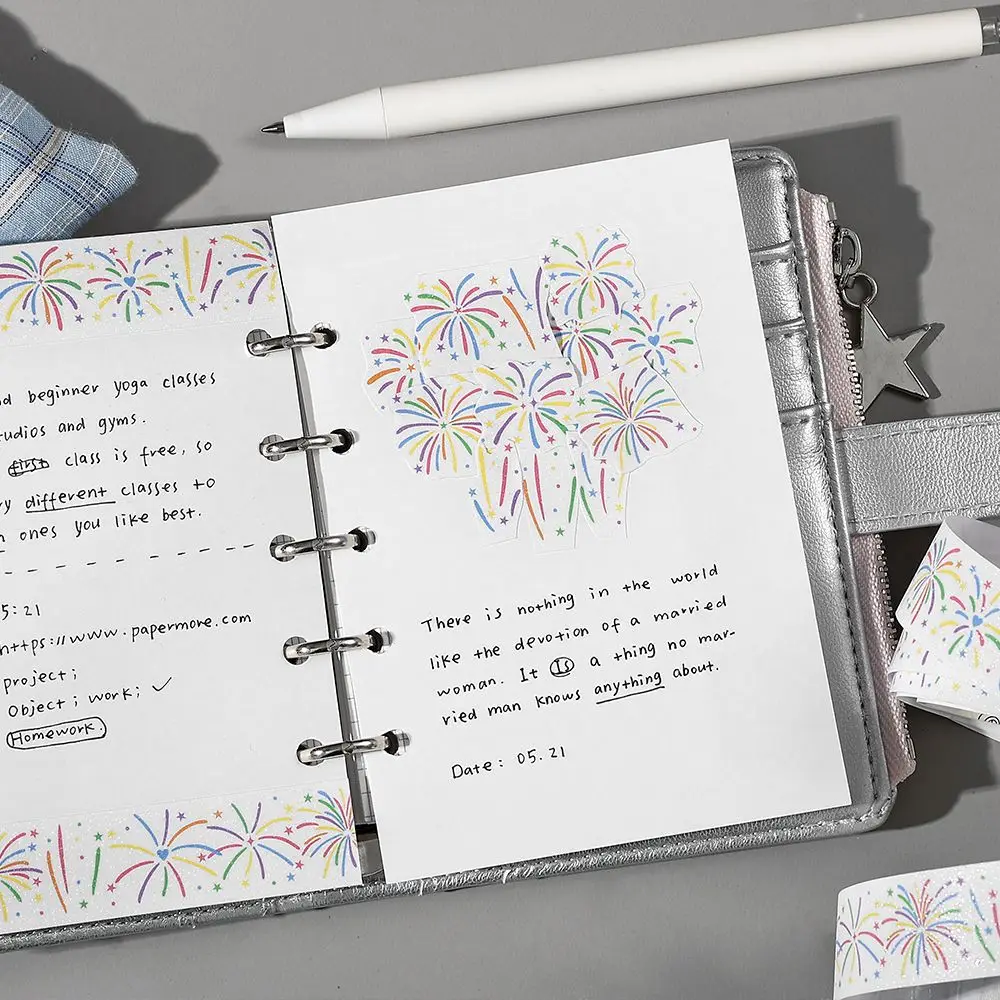 beginner yoga classes
studios and gyms.
first class is free, so
different classes to
ones you like best.
5:21
https://www.papermore.com
project;
Object; work; ✓
Homework.
There is nothing in the world
like the devotion of a married
woman. It Is a thing no mar-
ried man knows anything about.
Date: 05.21